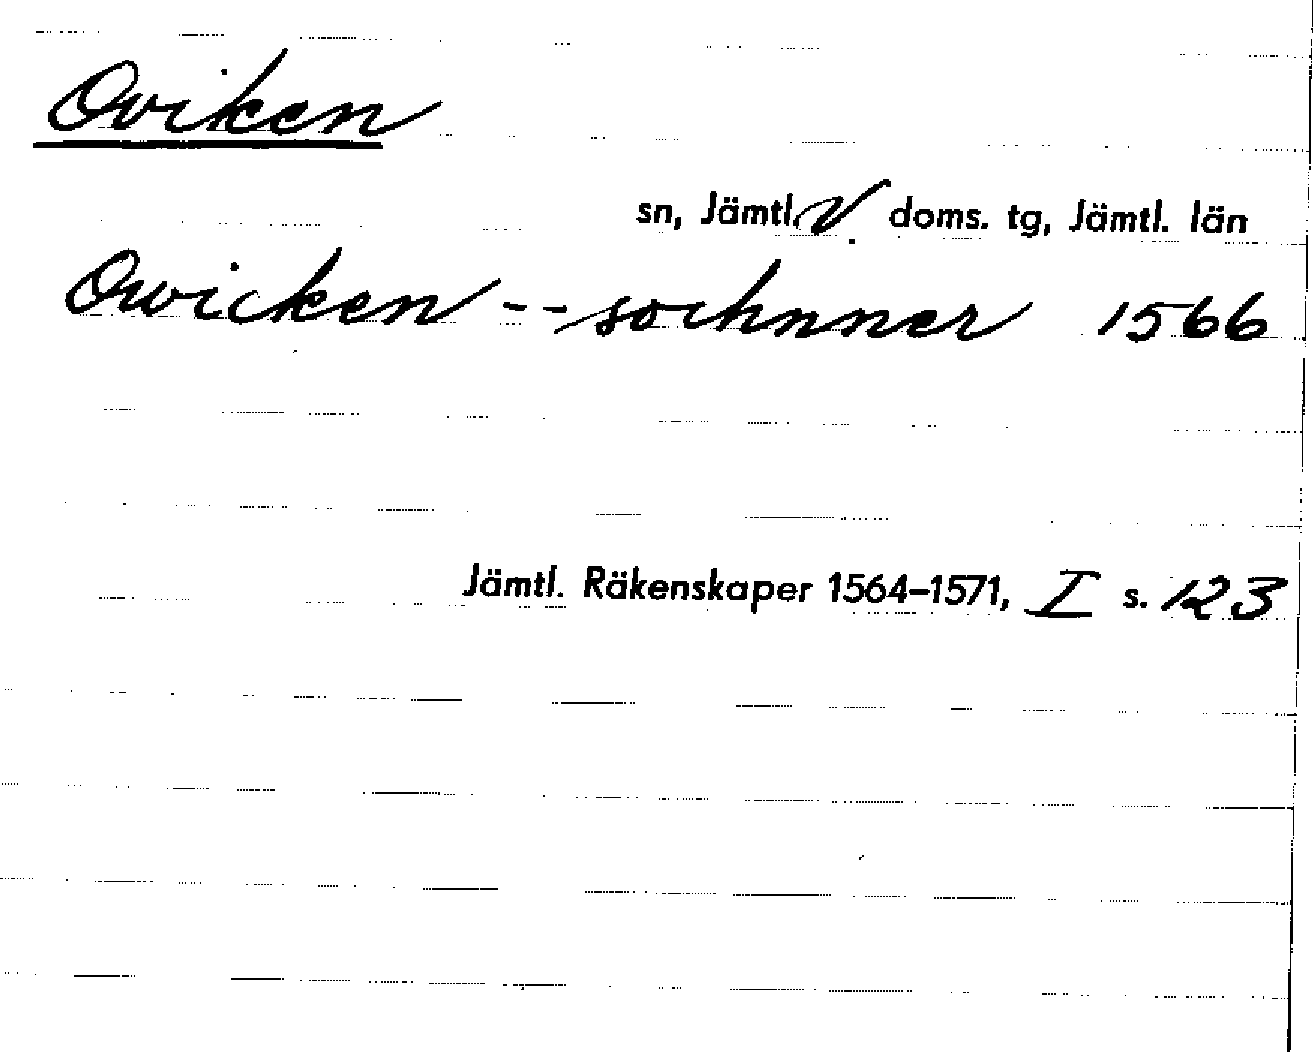 Oviken
sn, Jämtl. V. doms. tg, Jämtl. län
Owicken -- sochnner 1566
Jämtl. Räkenskaper 1564–1571, I s. 123